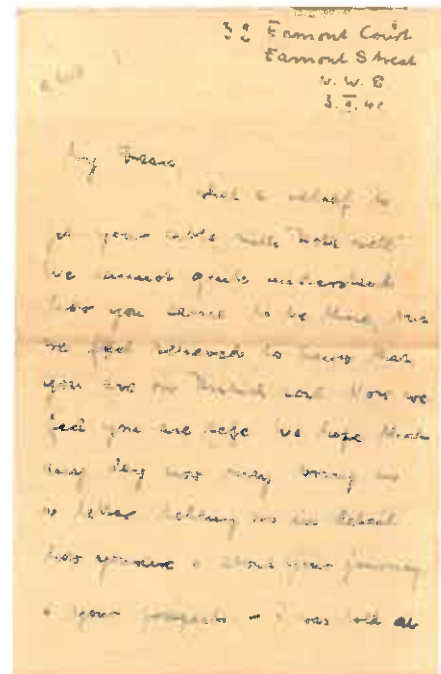 32 Eamont Court
Eamont Street
N. W. 8
3. 41
My
What a relief to
your cable with "both well"
we cannot quite understand
how you came to be there, but
we feel relieved to know that
you are on British soil. Now we
feel you are safe we hope that
any day now may bring us
a letter telling us in detail
how you are & about your journey
& your prospects - I was told at